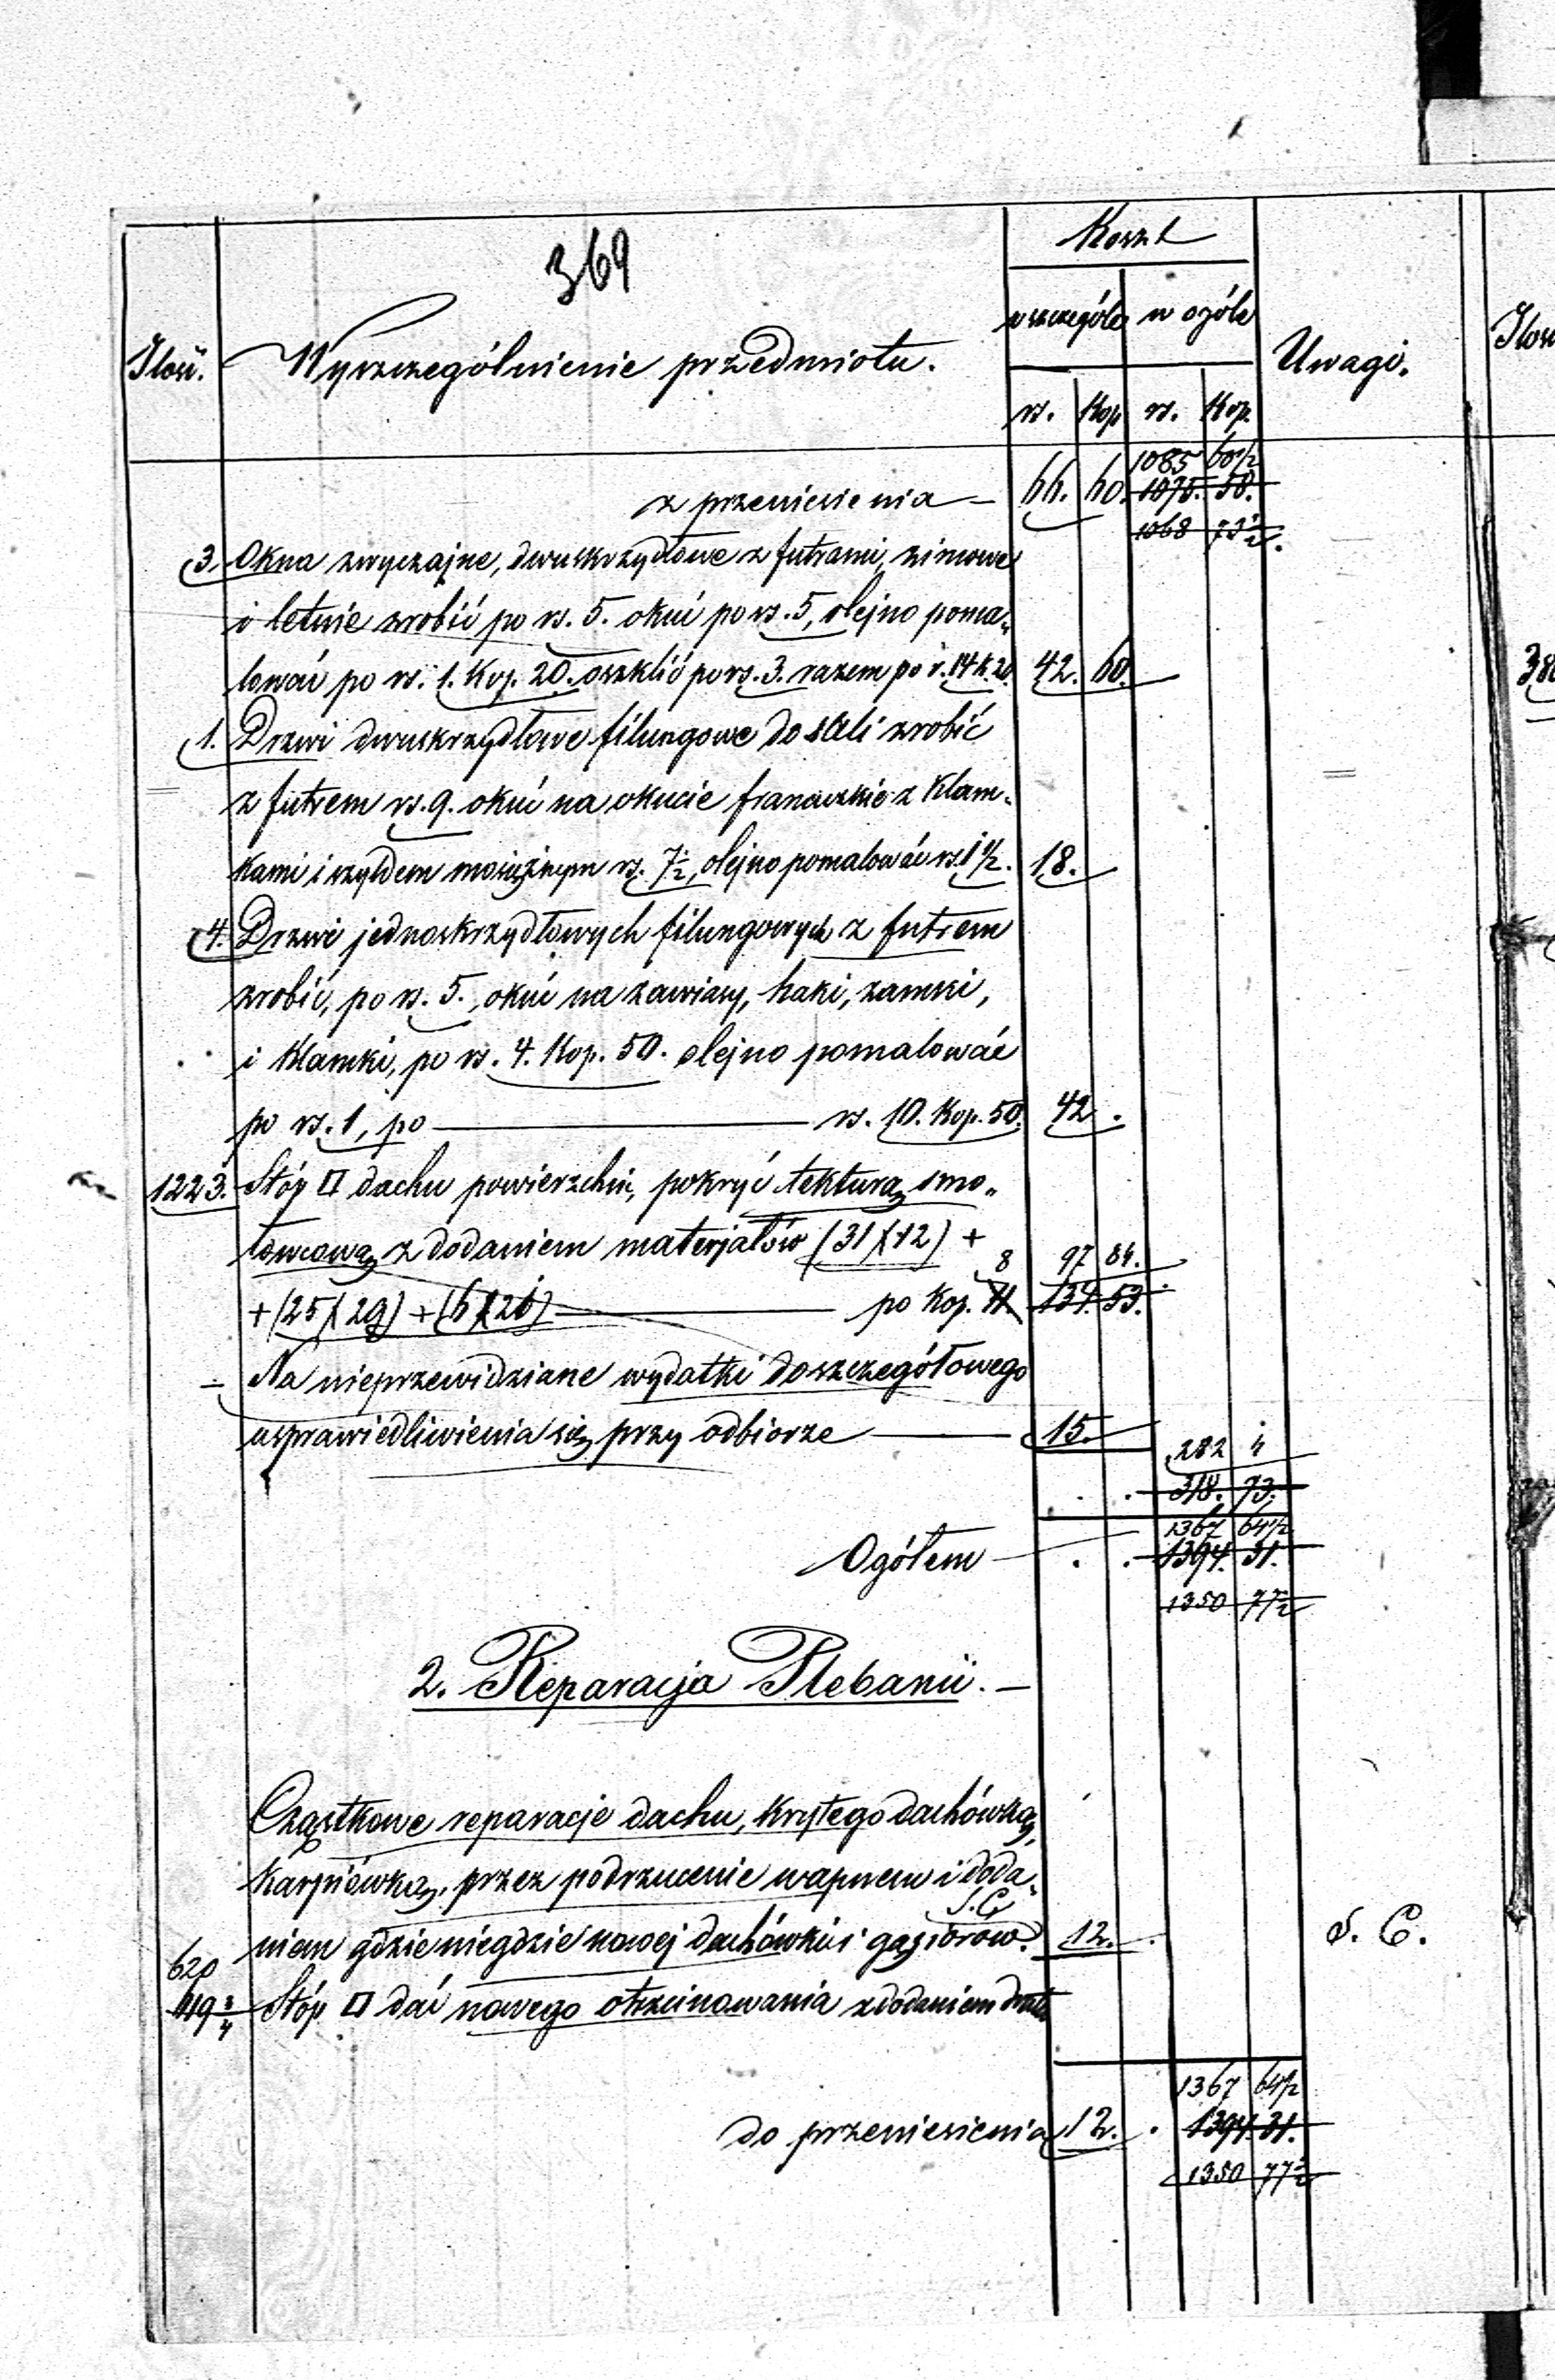 369
Koszt
w szczególe w ogóle
Ilość. Wyszczególnienie przedmiotu. Uwagi.
rs. Kop rs. Kop.
1085 60 1/2
z przeniesienia — 66. 60. 1075. 58.
1068 73 1/2.
3. Okna zwyczajne, dwuskrzydłowe z futrami, zimowe
i letnie zrobić po rs. 5. okuć po rs. 5, olejno poma„
lować po rs. 1. Kop. 20. oszklić po rs. 3. razem po r. 14 k. 20. 42. 60.
1. Drzwi dwuskrzydłowe filungowe do sali zrobić
z futrem rs. 9. okuć na okucie francuzkie z klam„
kami i szyldem mosiężnym rs. 7 1/2, olejno pomalować rs. 1 1/2. 18.
4. Drzwi jednoskrzydłowych filungowych z futrem
zrobić, po rs. 5., okuć na zawiasy, haki, zamki,
i klamki, po rs. 4. Kop. 50. olejno pomalować
po rs. 1, po — rs. 10. Kop. 50. 42.
1223. Stóp □ dachu powierzchni, pokryć tekturą smo„
łowcową z dodaniem materjałów (31 X 12) +
8 97 84.
+ (25 X 29) + (6 X 21) — po Kop. 11. 134. 53.
— Na nieprzewidziane wydatki do szczegółowego
usprawiedliwienia się przy odbiorze — 15.
282 4
318. 73.
1367 64 1/2
Ogółem — 1394. 31.
1350 77 1/2
2. Reparacja Plebanii. —
Cząstkowe reparacje dachu, krytego dachówką,
karpiówką, przez podrzucenie wapnem i doda„
S. C.
niem gdzie niegdzie nowej dachówki i gąsiorów. 12. S. C.
620
419 3/4 Stóp □ dać nowego otrzcinowania z dodaniem drutu
1367 64 1/2
do przeniesienia 12. 1394. 31.
1350 77 1/2